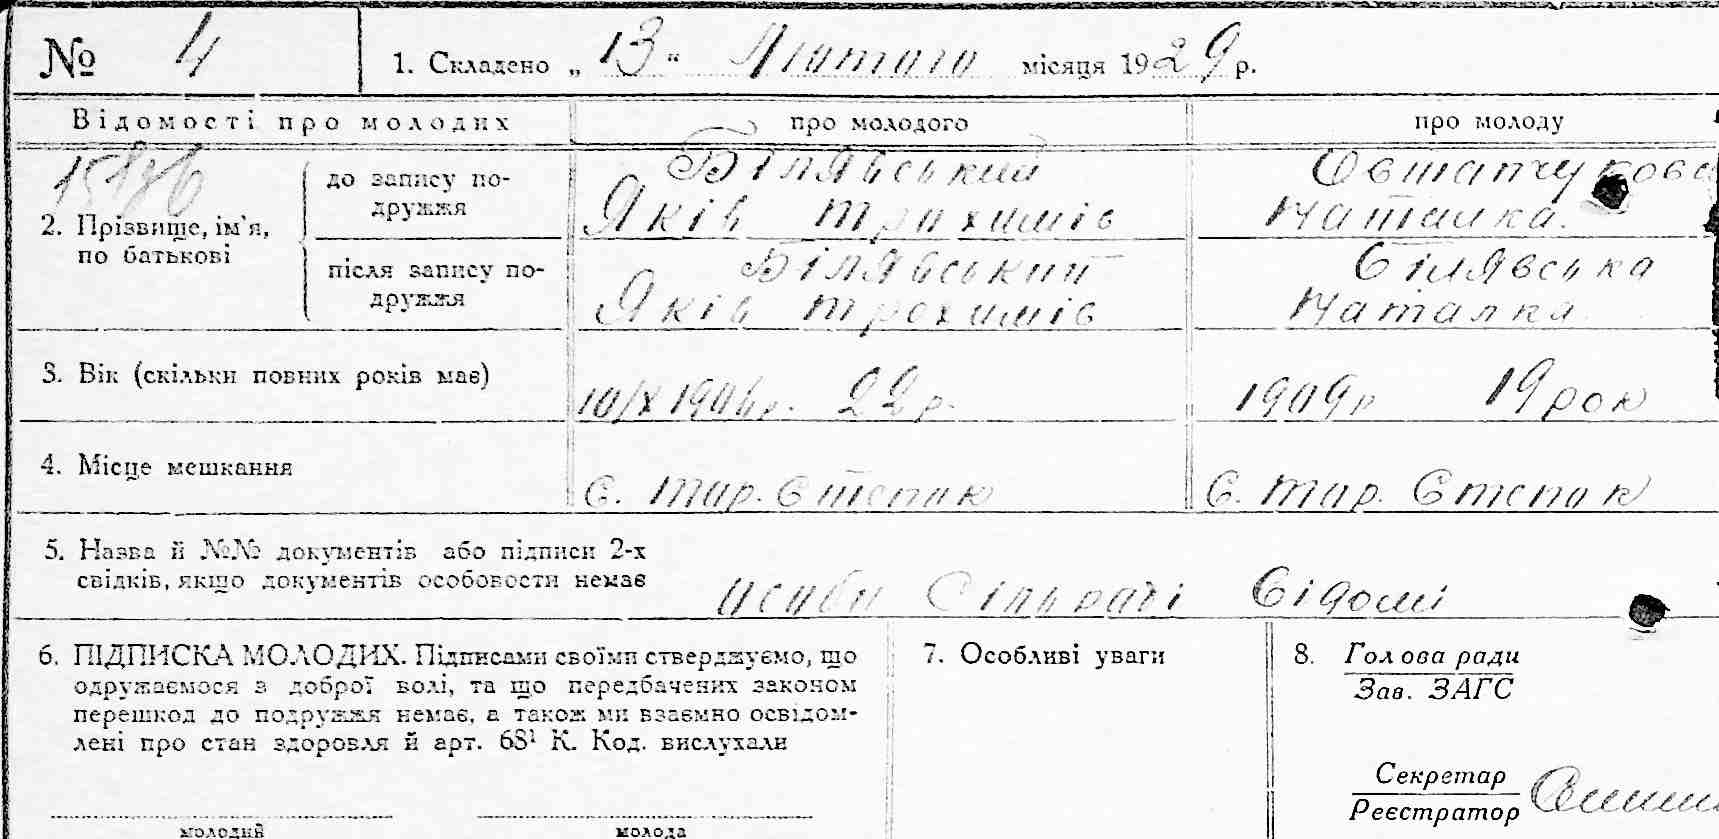 № 4
1. Складено „13“ Лютого місяця 1929 р.
Відомості про молодих
про молодого
про молоду
2. Прізвище, ім'я, по батькові
до запису по-
дружжя
Білявський
Яків Трохимів
Наталка.
після запису по-
дружжя
Білявський
Яків Трохимів
Білявська
Наталка
3. Вік (скільки повних років має)
10/X 1906р. 22р.
1909р 19 рок
4. Місце мешкання
с. Стар. Степок
с. Стар. Степок
5. Назва й №№ документів або підписи 2-х
свідків, якщо документів особовости немає
особи Сільраді відомі
6. ПІДПИСКА МОЛОДИХ. Підписами своїми стверджуємо, що
одружаємося з доброї волі, та що передбачених законом
перешкод до подружжя немає, а також ми взаємно освідом-
лені про стан здоровля й арт. 68¹ К. Код. вислухали
молодий
молода
7. Особливі уваги
8. Голова ради
Зав. ЗАГС
Секретар
Реєстратор